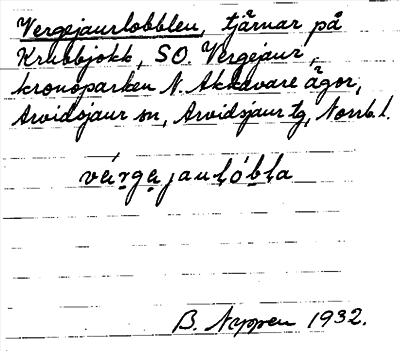 Vergejaurlobblen, tjärnar på
Krubbjokk, SO. Vergejaur,
kronoparken N. Akkavare ägor,
Arvidsjaur sn, Arvidsjaur tg, Norrb. l.
várgajaulóbla
B. Nyppen 1932.